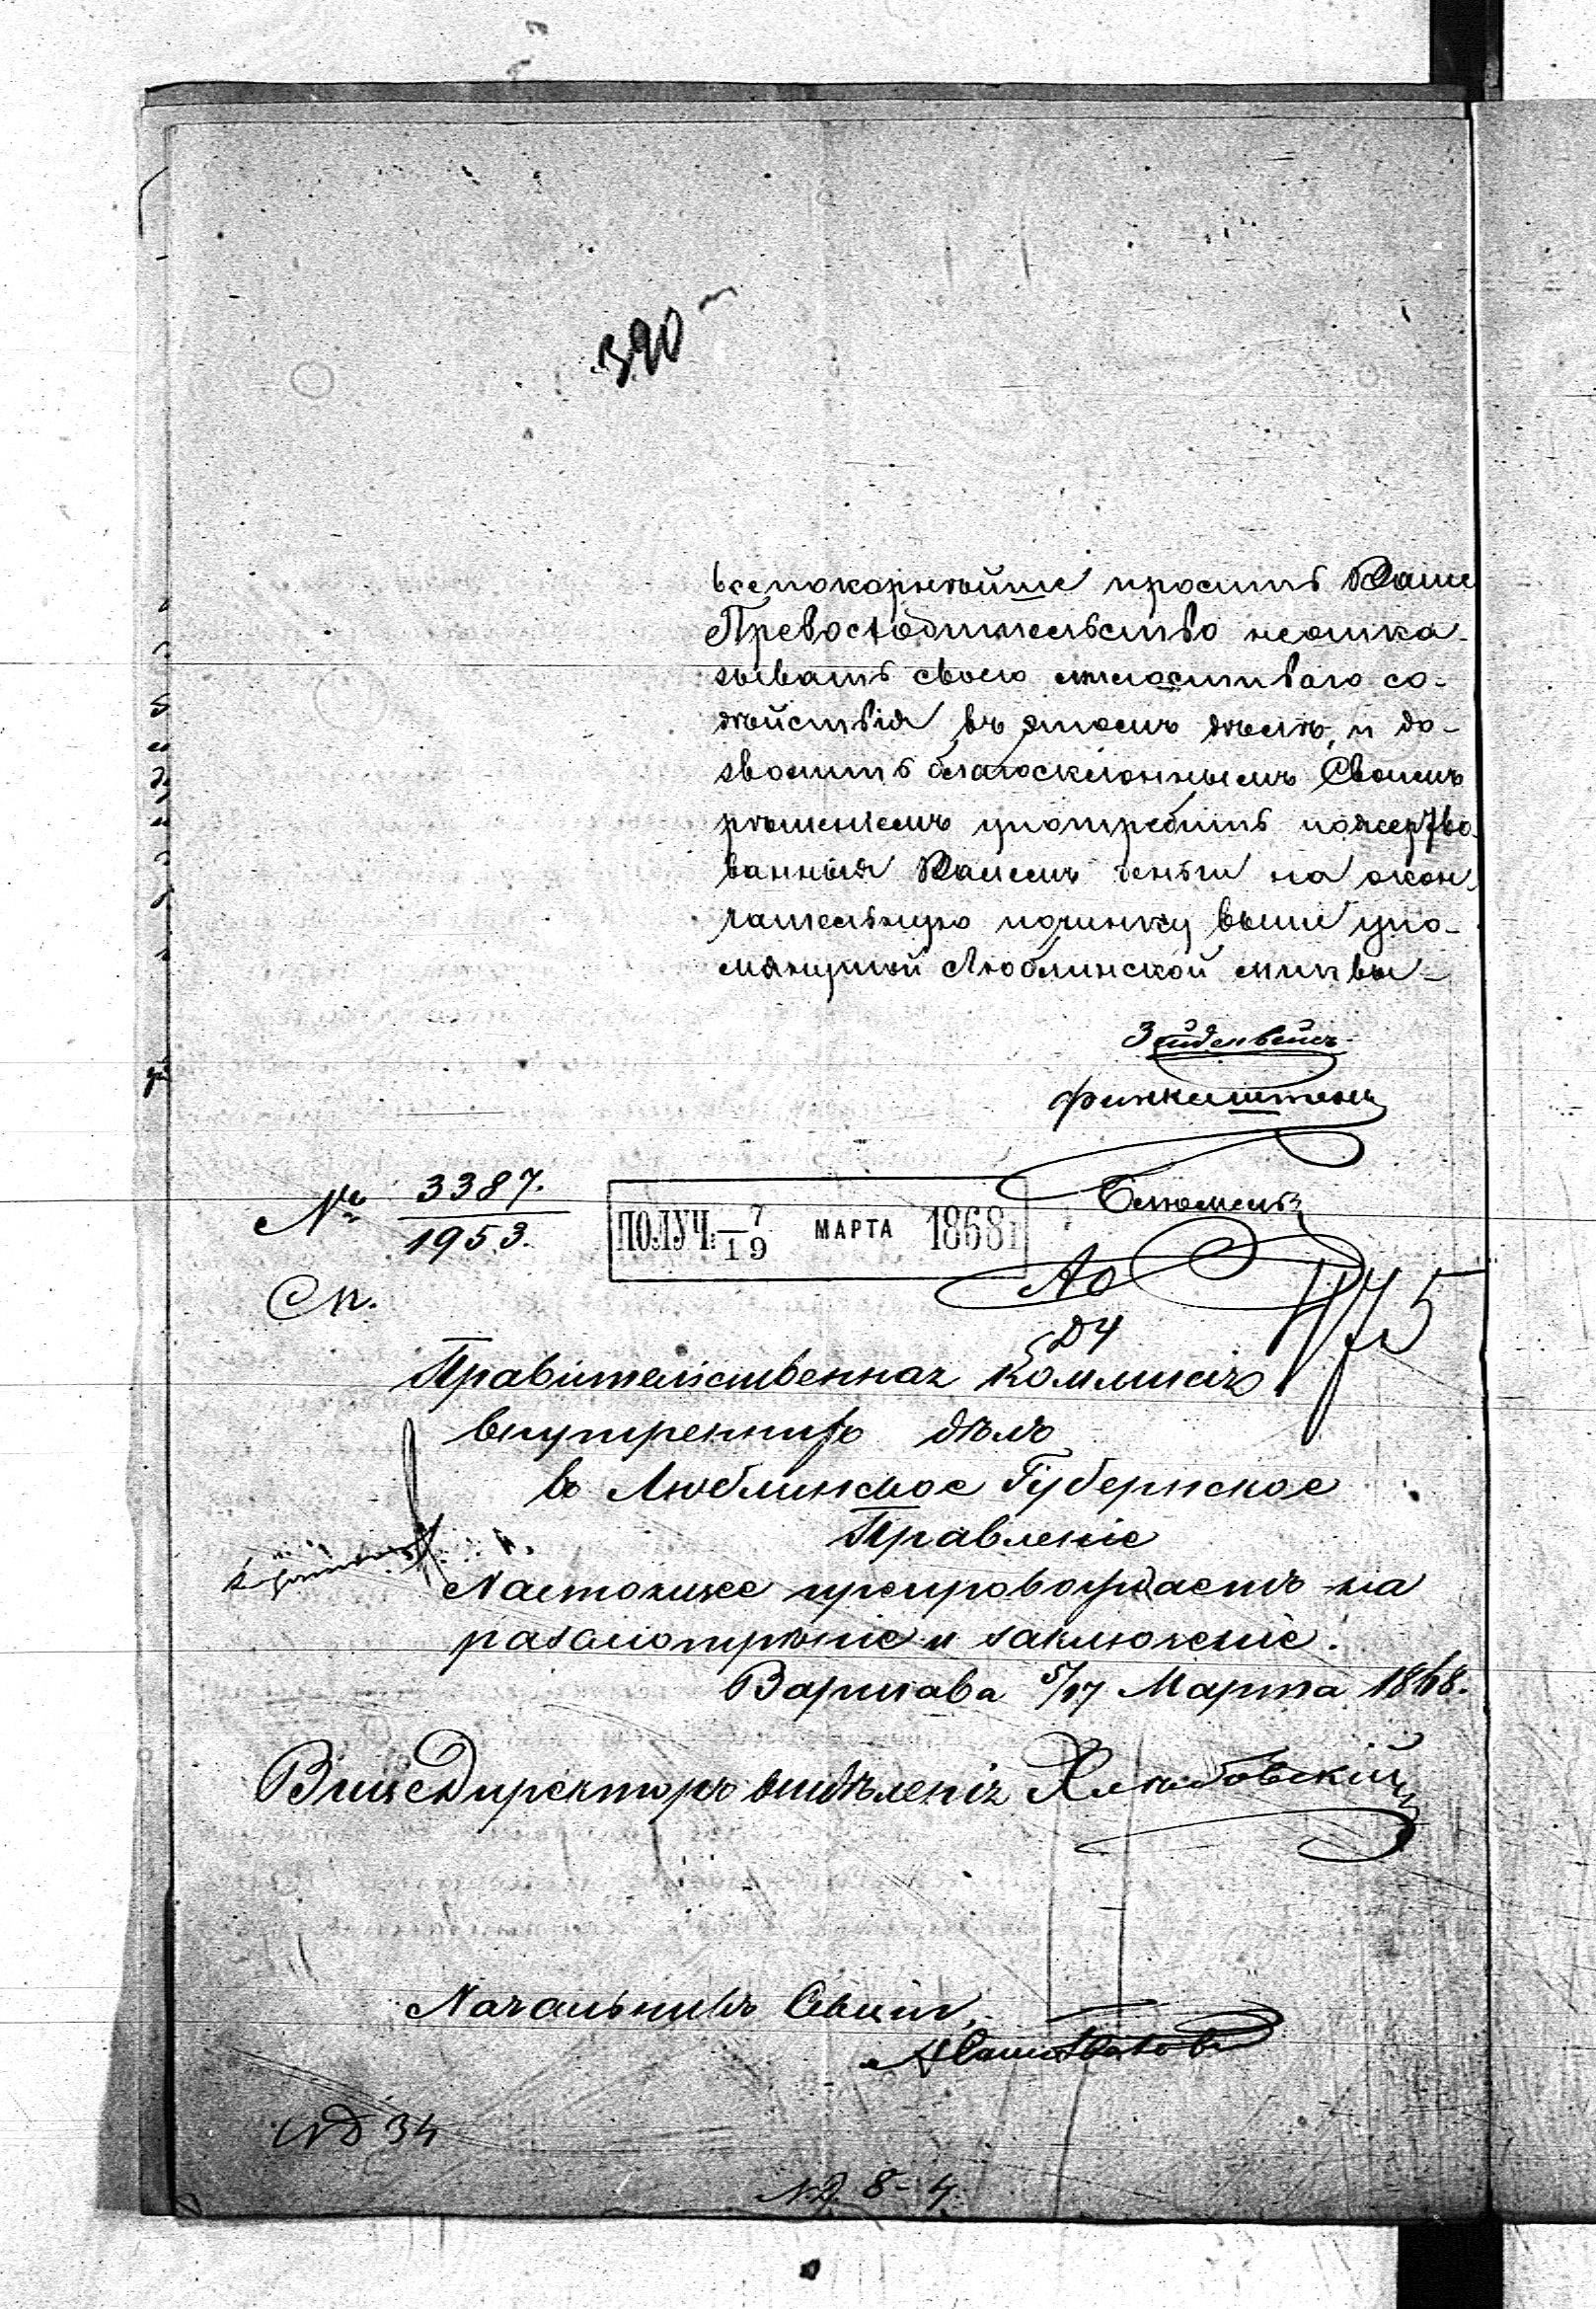 390
всепокорнѣйше просить Ваше
Превосходительство неотка-
зывать своего милостиваго со-
дѣйствія въ этомъ дѣлѣ, и до-
зволить благосклоннымъ Своимъ
рѣшеніемъ употребить пожертво-
ванныя Вами деньги на окон-
чательную починку выше упо-
мянутой Люблинской миквы
Зайденвейсъ
Финкиштейнъ
№ 3387.
1953.
ПОЛУЧ: 7/19 МАРТА 1868 г
Сп.
Правительственная Коммисія
внутреннихъ дѣлъ
въ Люблинское Губернское
Правленіе
Настоящее препровождаетъ на
разсмотрѣніе и заключеніе.
Варшава 5/17 Марта 1868.
ВицеДиректоръ отдѣленія
Начальникъ Секціи,
ND 34
N.D. 8-4.